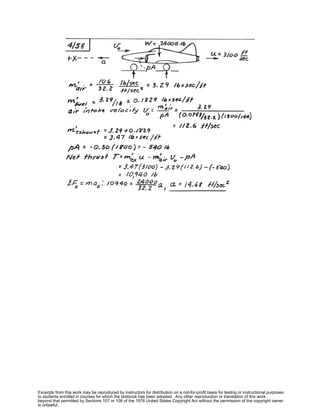 4/58
U₀
W = 24000 lb
u = 3100 ft/sec
+x - - -
a
-pA
m'air = 106/32.2 lb/sec / ft/sec² = 3.29 lb·sec/ft
m'fuel = 3.29/18 = 0.1829 lb·sec/ft
air intake velocity U₀ = m'air/ρA = 3.29/(0.0753/32.2)(1800/144)
= 112.6 ft/sec
m'exhaust = 3.29 + 0.1829
= 3.47 lb·sec/ft
pA = -0.30(1800) = -540 lb
Net thrust T = m'ex u - m'air U₀ - pA
= 3.47(3100) - 3.29(112.6) - (-540)
= 10,940 lb
ΣFx = max: 10940 = 24000/32.2 a, a = 14.68 ft/sec²
Excerpts from this work may be reproduced by instructors for distribution on a not-for-profit basis for testing or instructional purposes
to students enrolled in courses for which the textbook has been adopted. Any other reproduction or translation of this work
beyond that permitted by Sections 107 or 108 of the 1976 United States Copyright Act without the permission of the copyright owner
is unlawful.